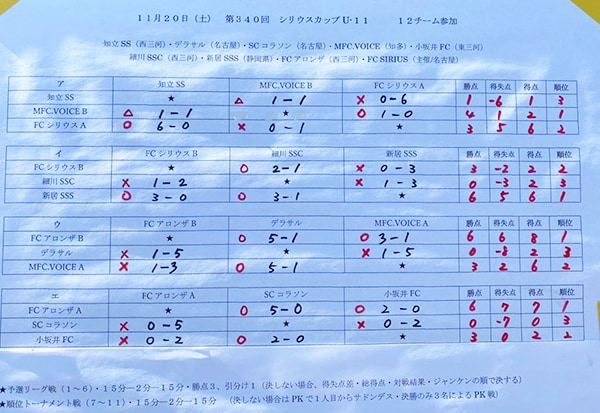 11月20日（土） 第340回 シリウスカップU-11 12チーム参加
知立SS（西三河）・デラサル（名古屋）・SCコラソン（名古屋）、MFC.VOICE（知多）・小坂井FC（東三河）
細川SSC（西三河）・新居SSS（静岡県）・FCアロンザ（西三河）・FC SIRIUS（主催/名古屋）
ア 知立SS MFC.VOICE B FCシリウスA 勝点 得失点 得点 順位
知立SS ★ △ 1-1 × 0-6 1 -6 1 3
MFC.VOICE B △ 1-1 ★ ○ 1-0 4 1 2 1
FCシリウスA ○ 6-0 × 0-1 ★ 3 5 6 2
イ FCシリウスB 細川SSC 新居SSS 勝点 得失点 得点 順位
FCシリウスB ★ ○ 2-1 × 0-3 3 -2 2 2
細川SSC × 1-2 ★ × 1-3 0 -3 2 3
新居SSS ○ 3-0 ○ 3-1 ★ 6 5 6 1
ウ FCアロンザB デラサル MFC.VOICE A 勝点 得失点 得点 順位
FCアロンザB ★ ○ 5-1 ○ 3-1 6 6 8 1
デラサル × 1-5 ★ × 1-5 0 -8 2 3
MFC.VOICE A × 1-3 ○ 5-1 ★ 3 2 6 2
エ FCアロンザA SCコラソン 小坂井FC 勝点 得失点 得点 順位
FCアロンザA ★ ○ 5-0 ○ 2-0 6 7 7 1
SCコラソン × 0-5 ★ × 0-2 0 -7 0 3
小坂井FC × 0-2 ○ 2-0 ★ 3 0 2 2
★予選リーグ戦（1～6）・15分―2分―15分・勝点3、引分け1（決しない場合、得失点差・総得点・対戦結果・ジャンケンの順で決する）
★順位トーナメント戦（7～11）・15分―2分―15分 （決しない場合はPKで1人目からサドンデス・決勝のみ3名によるPK戦）